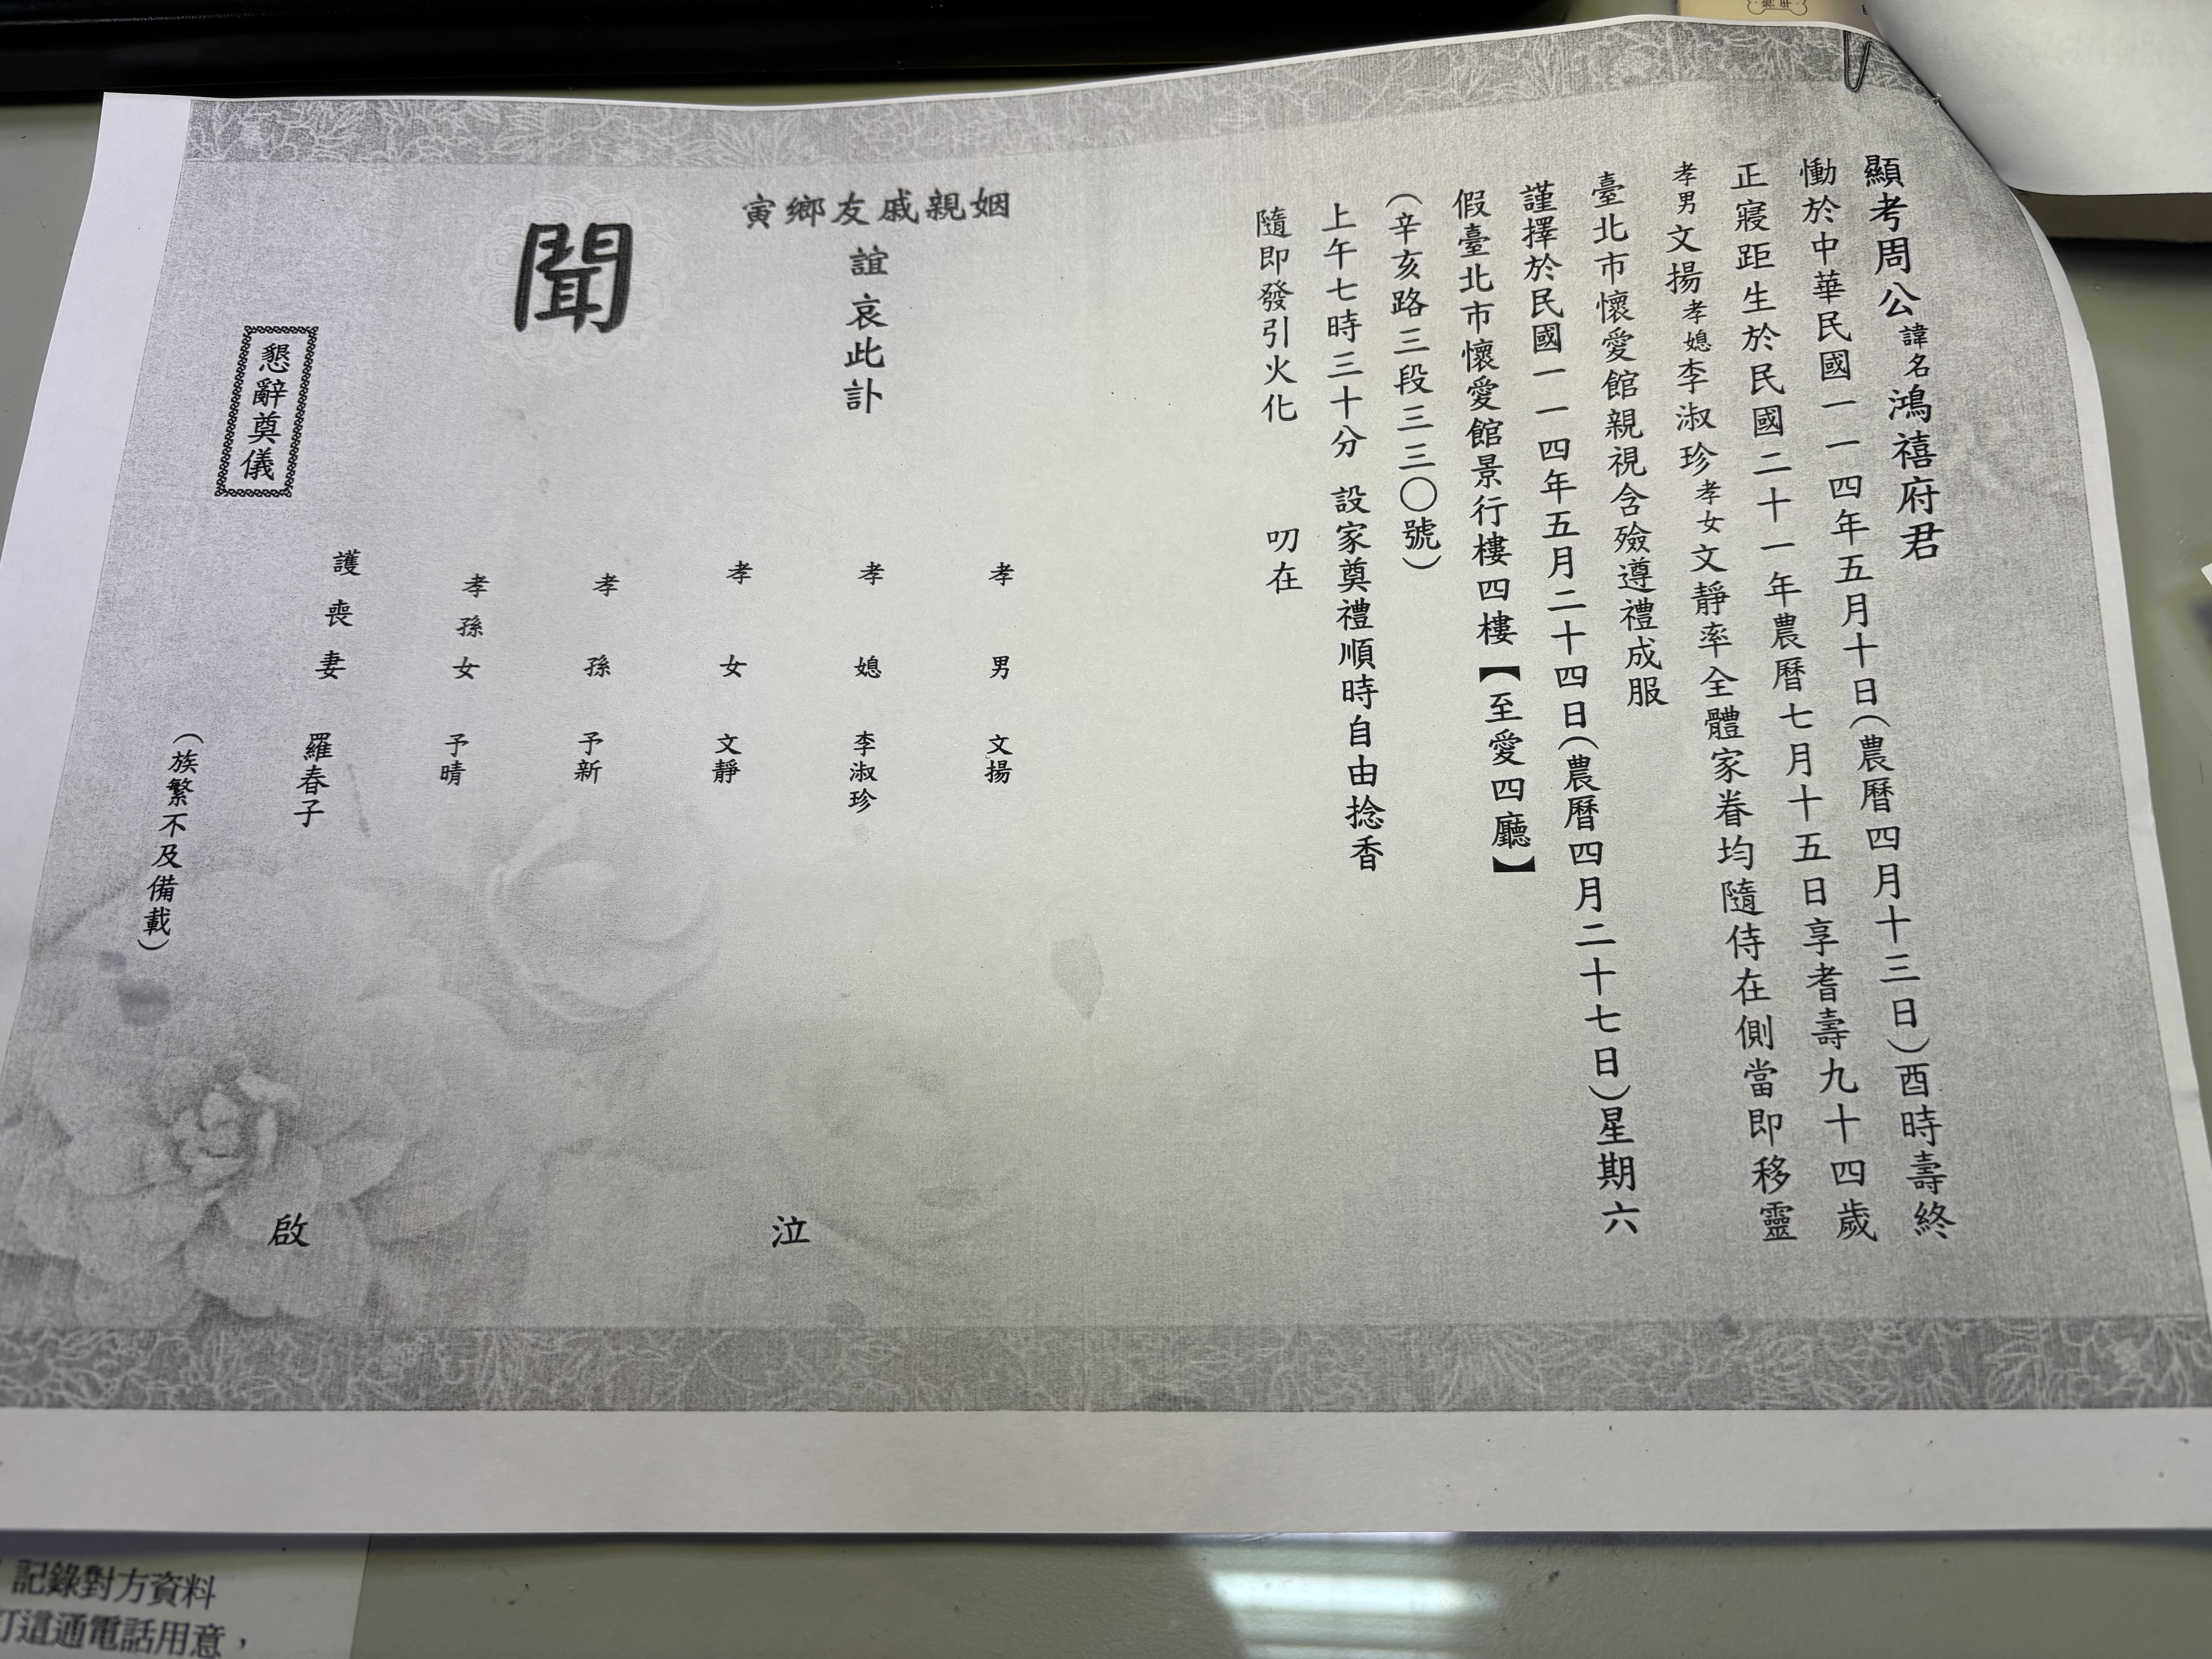 顯考周公諱名鴻禧府君
慟於中華民國一一四年五月十日(農曆四月十三日)酉時壽終
正寢距生於民國二十一年農曆七月十五日享耆壽九十四歲
孝男文揚孝媳李淑珍孝女文靜率全體家眷均隨侍在側當即移靈
臺北市懷愛館親視含殮遵禮成服
謹擇於民國一一四年五月二十四日(農曆四月二十七日)星期六
假臺北市懷愛館景行樓四樓【至愛四廳】
(辛亥路三段三三〇號)
上午七時三十分 設家奠禮順時自由捻香
隨即發引火化 叨在
姻親戚友鄉寅
誼 哀此訃
聞
孝男 文揚
孝媳 李淑珍
孝女 文靜
孝孫 予新
孝孫女 予晴
護喪妻 羅春子
(族繁不及備載)
泣 啟
懇辭奠儀
記錄對方資料
打這通電話用意，